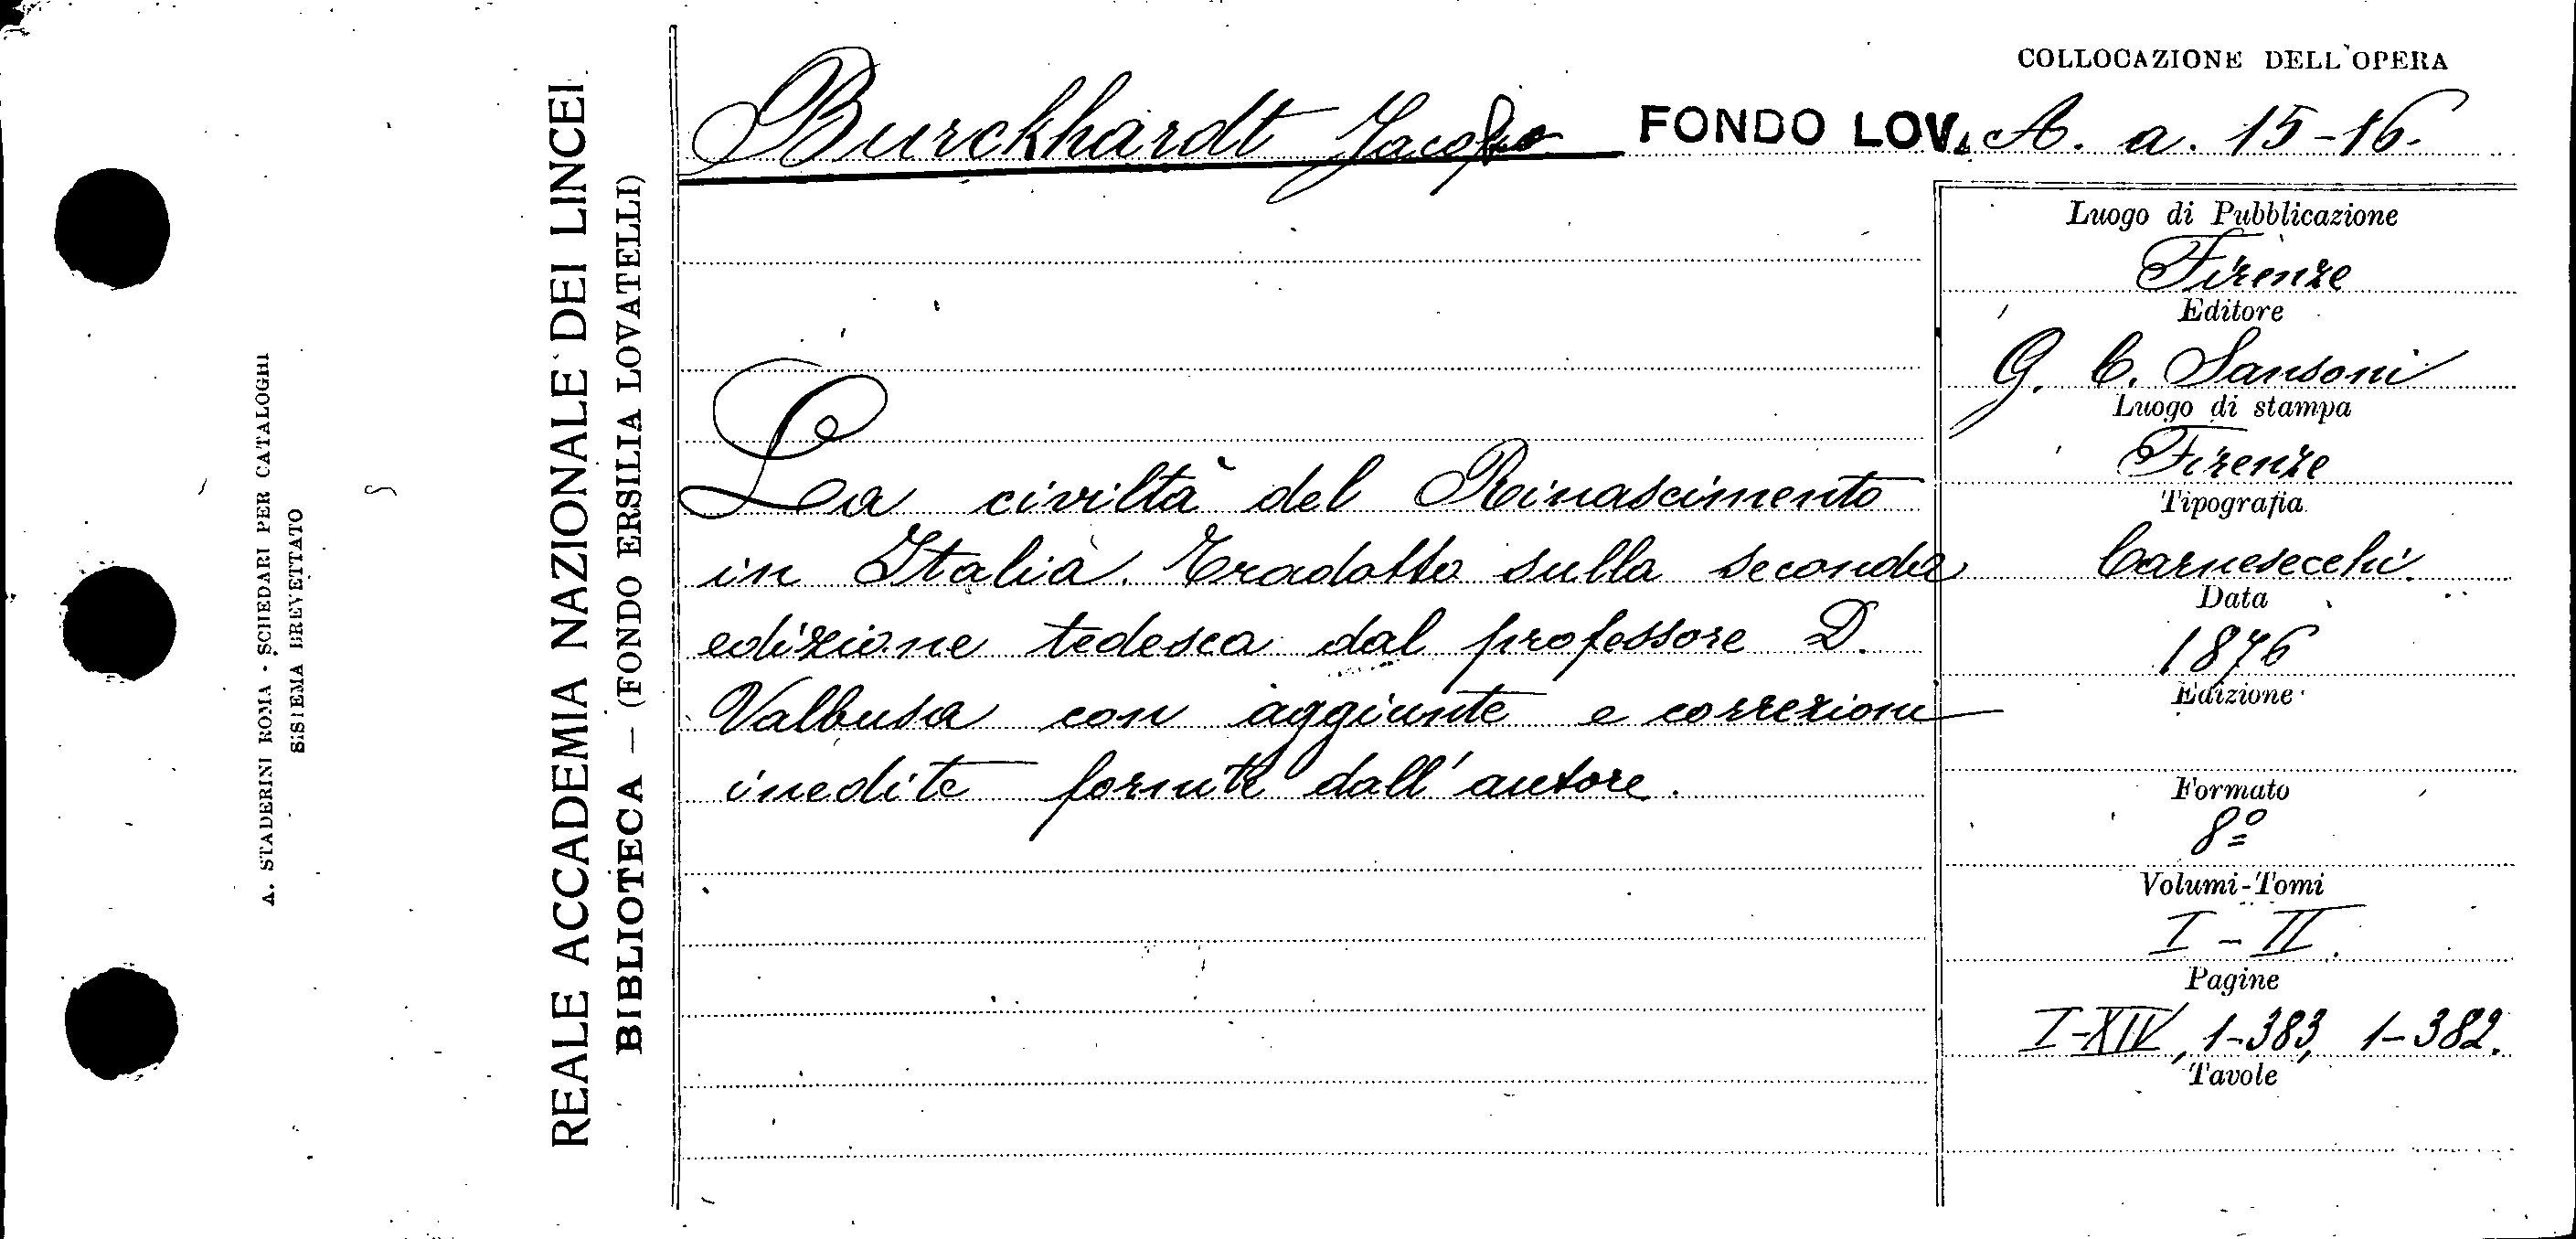 COLLOCAZIONE DELL'OPERA
Burckhardt Jacopo FONDO LOV. A. a. 15-16.
La civiltà del Rinascimento
in Italia. Tradotto sulla seconda
edizione tedesca dal professore D.
Valbusa con aggiunte e correzioni
inedite fornite dall'autore.
Luogo di Pubblicazione
Firenze
Editore
G. C. Sansoni
Luogo di stampa
Firenze
Tipografia
Carnesecchi.
Data
1876
Edizione
Formato
8º
Volumi-Tomi
I-II.
Pagine
I-XIV, 1-383, 1-382.
Tavole
REALE ACCADEMIA NAZIONALE DEI LINCEI
BIBLIOTECA — (FONDO ERSILIA LOVATELLI)
A. STADERINI ROMA - SCHEDARI PER CATALOGHI
SISTEMA BREVETTATO